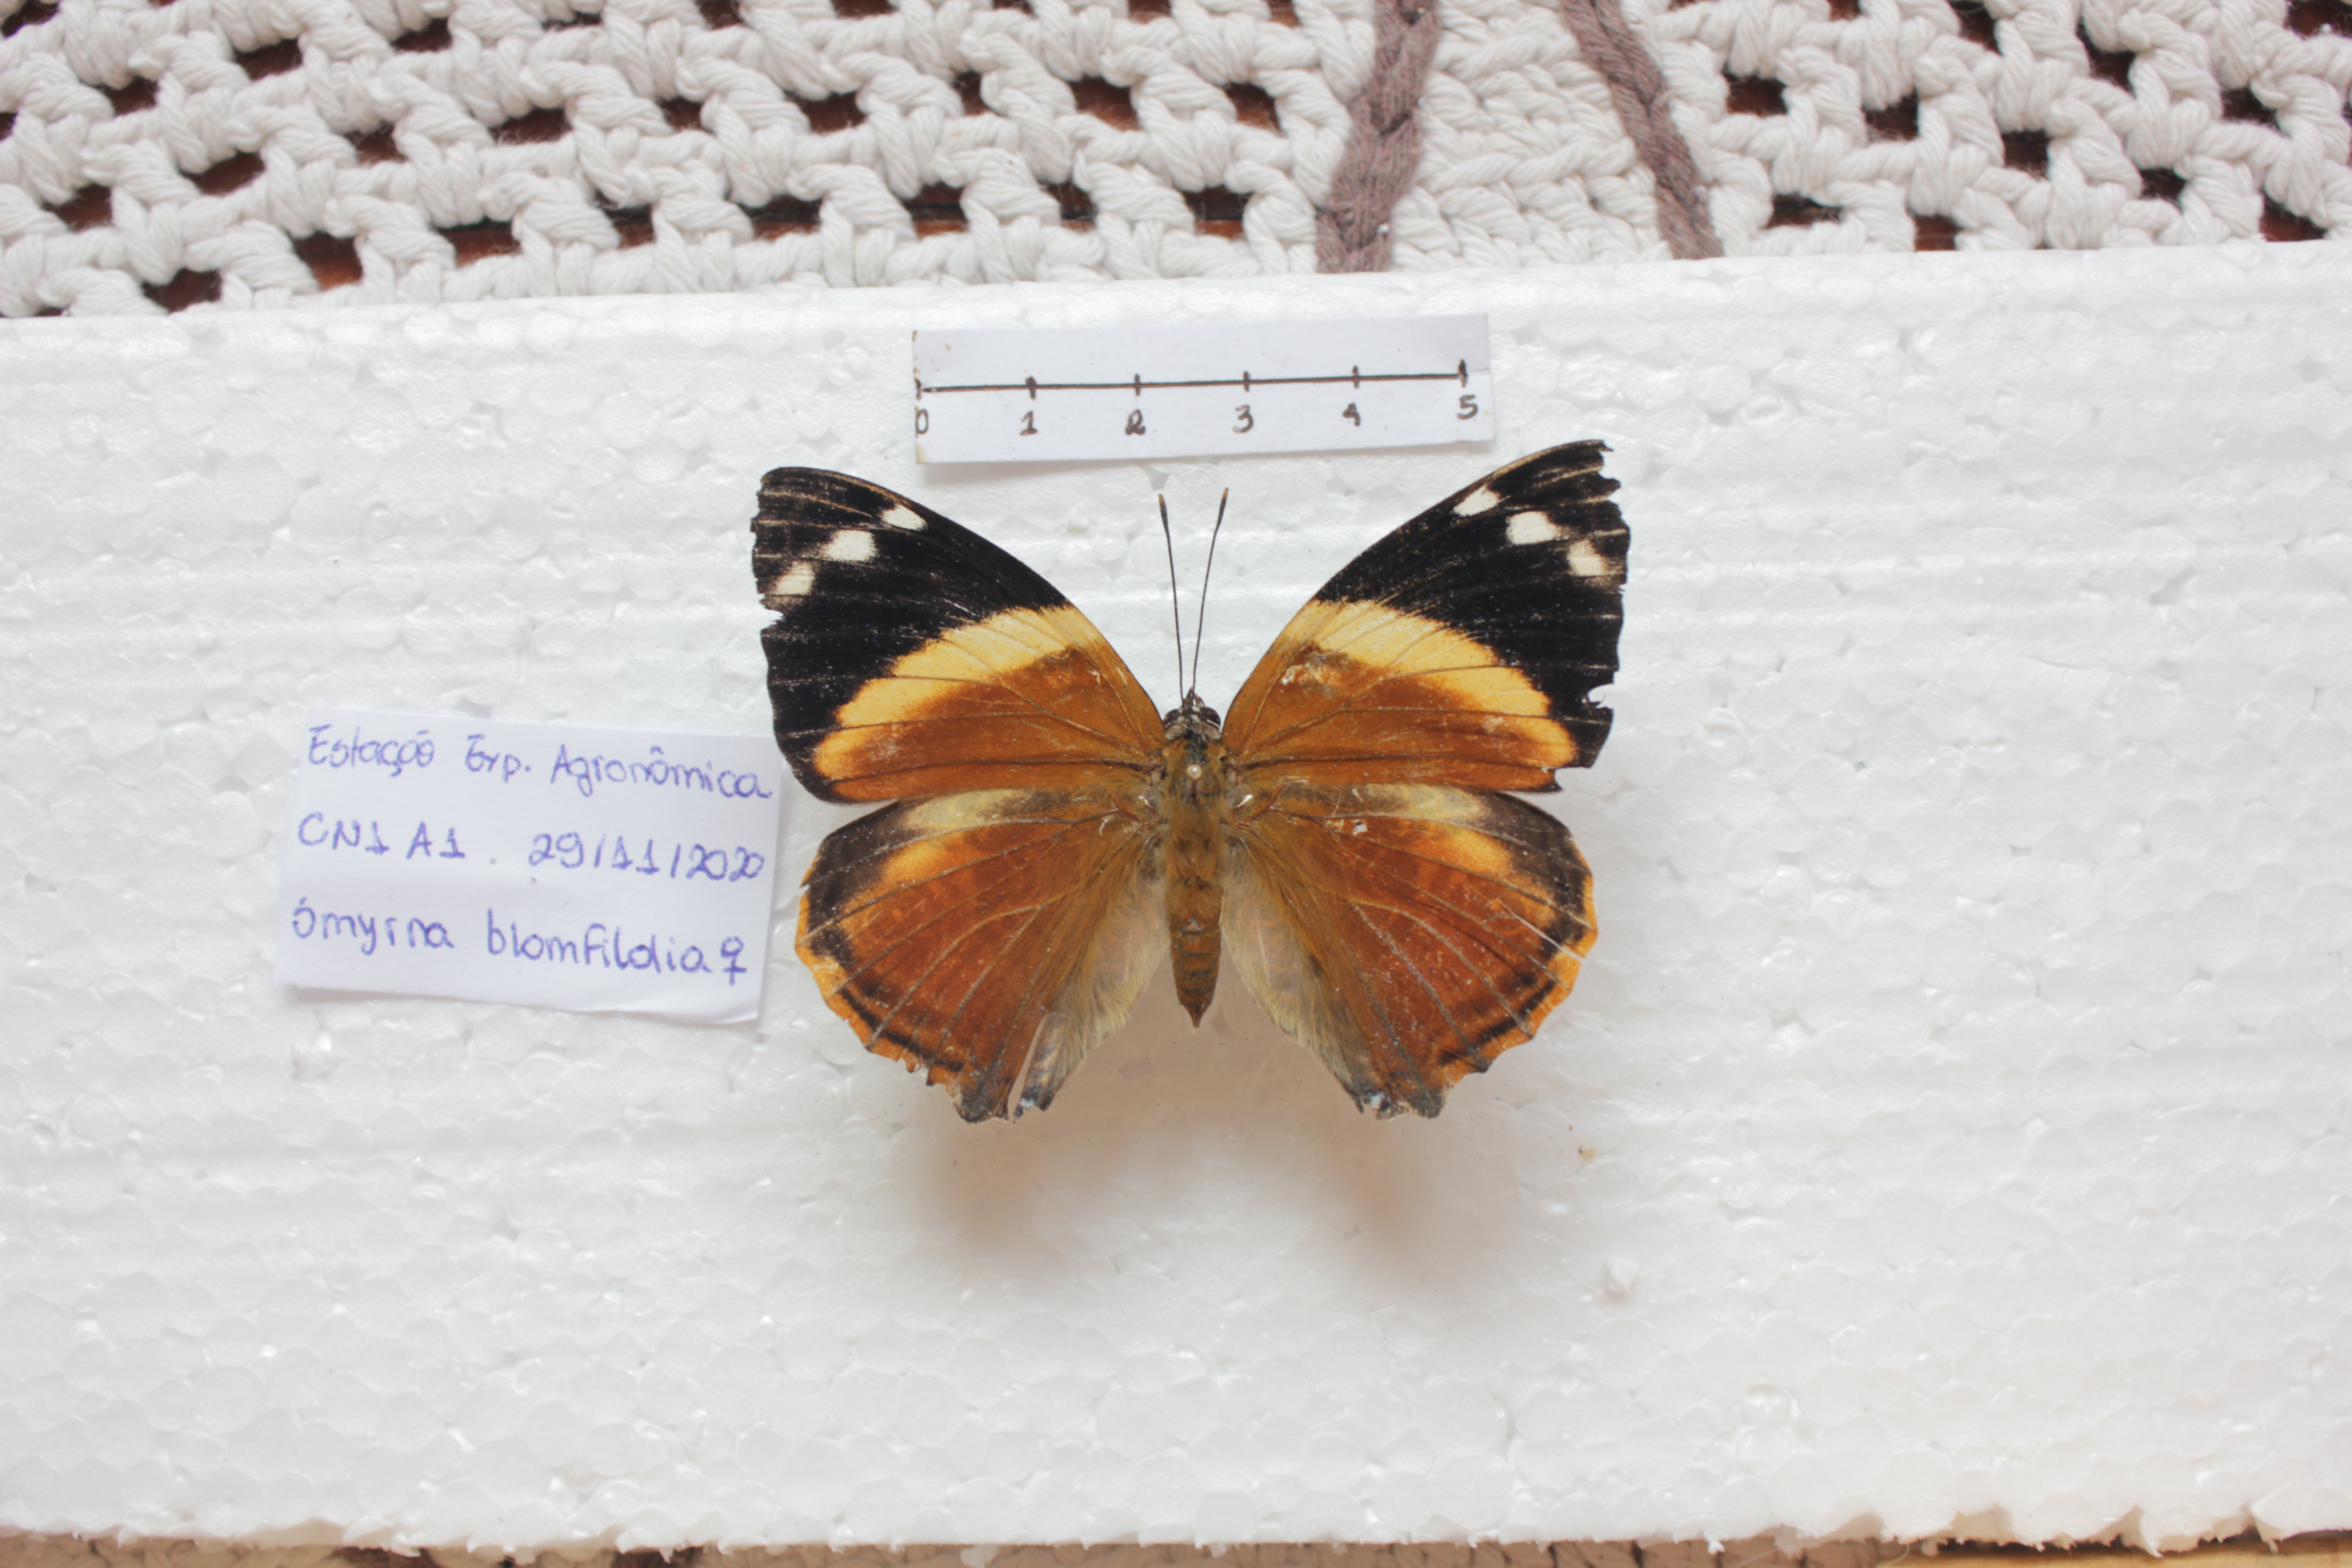 0 1 2 3 4 5
Estação Exp. Agronômica
CN1 A1. 29/11/2020
Smyrna blomfildia ♀